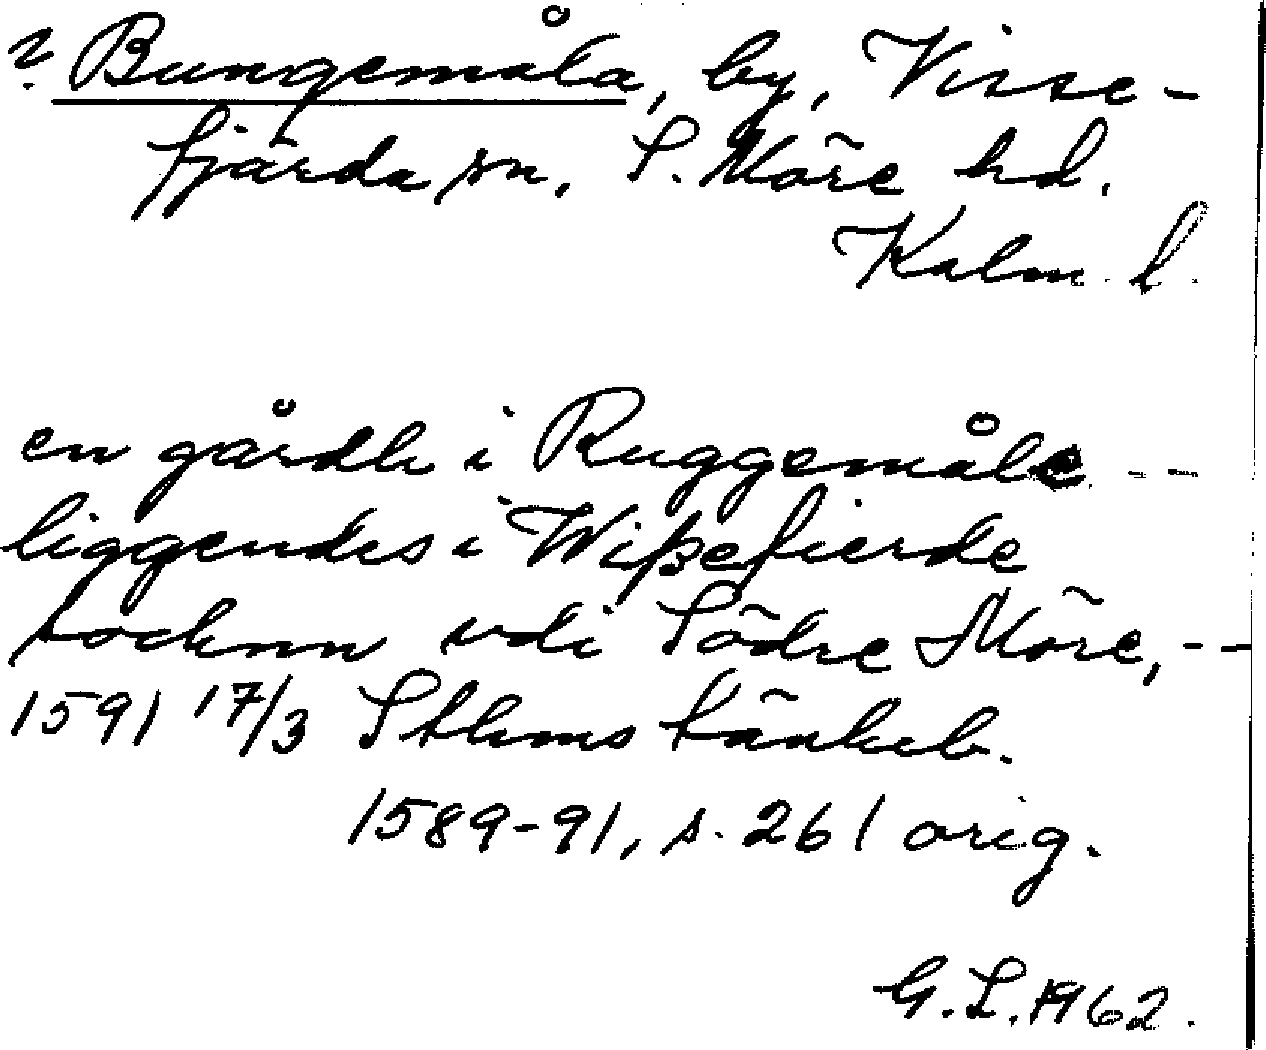 ? Bungemåla, by, Visse-
fjärda sn, S. Möre hd.
Kalm. l.
en gårdh i Ruggemåle - -
liggendes i Wißefierde
sochnn vdi Södre Möre, - -
1591 17/3 Sthms tänkeb.
1589-91, s. 261 orig.
G. L. 1962.